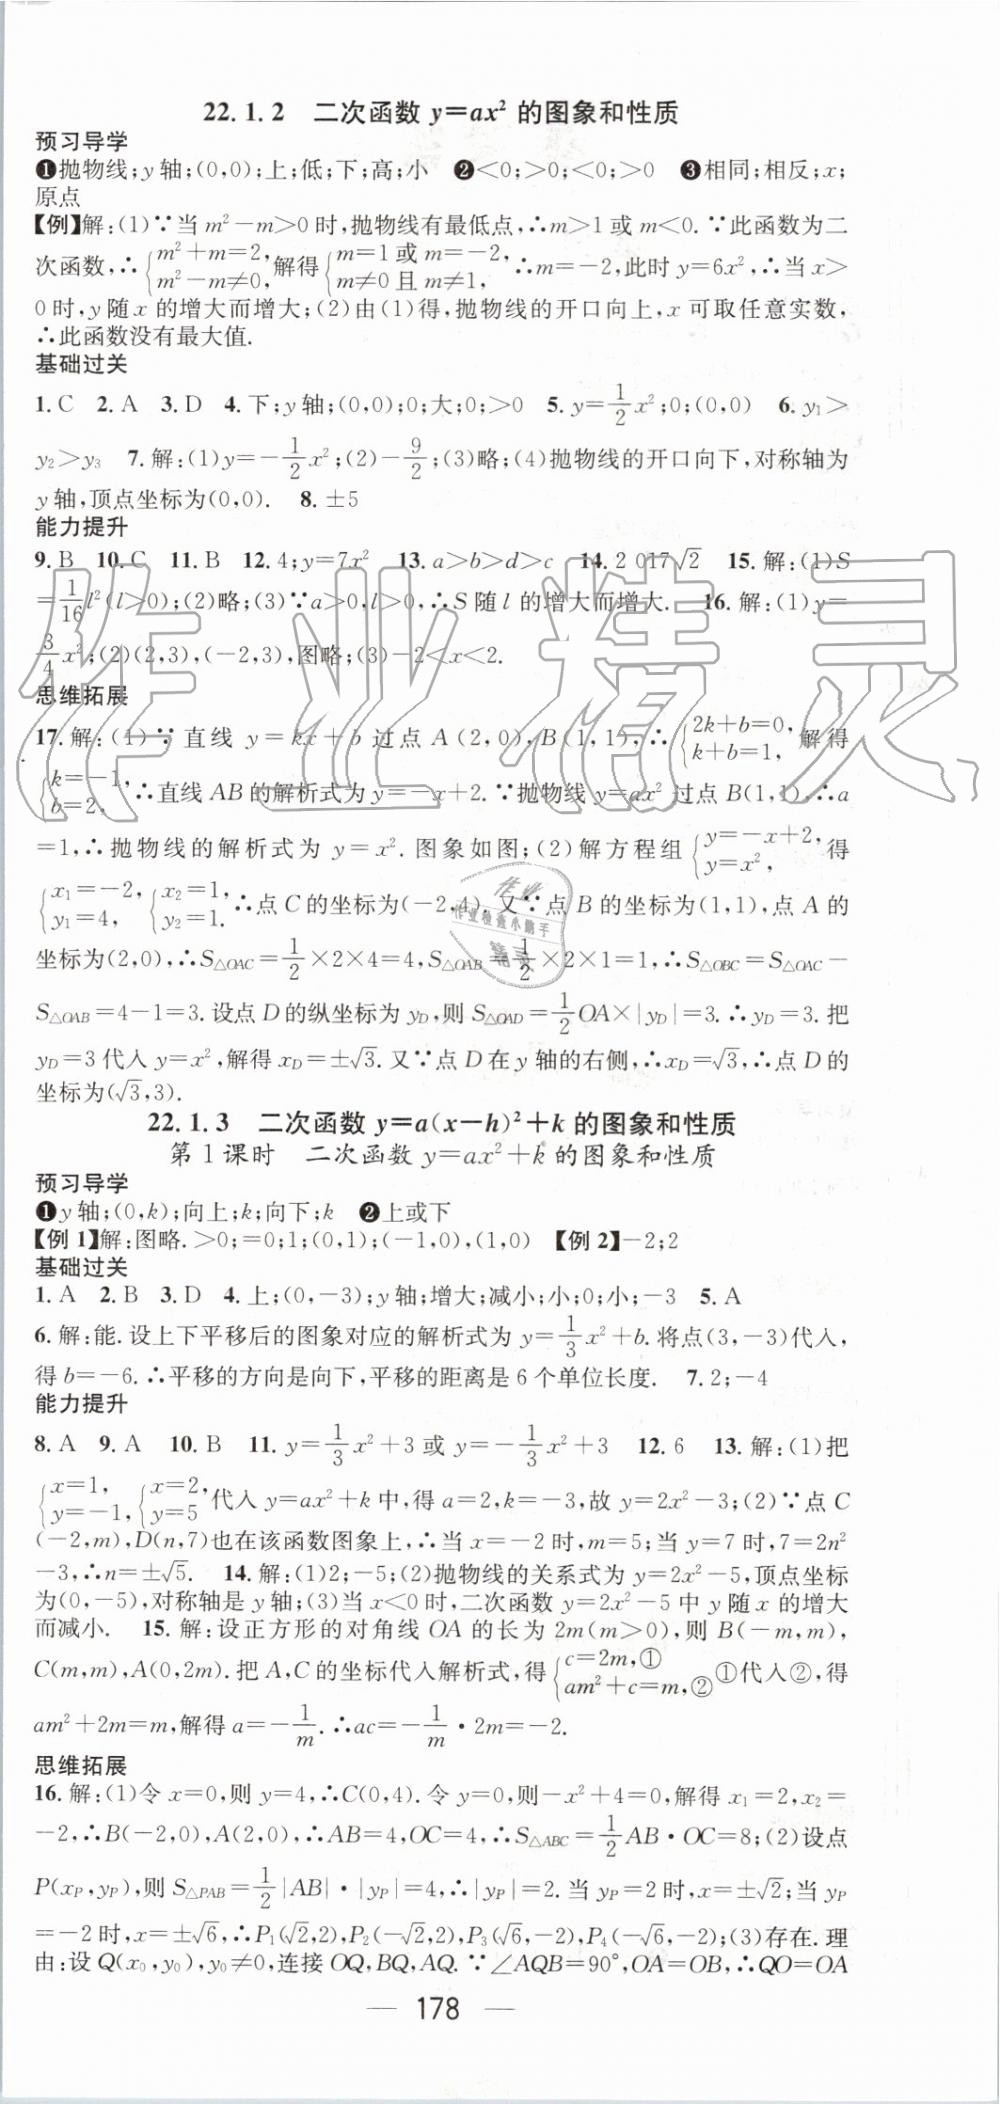 22.1.2 二次函数 y=ax² 的图象和性质
预习导学
❶抛物线;y 轴;(0,0);上;低;下;高;小 ❷<0;>0;<0;>0 ❸相同;相反;x;
原点
【例】解:(1)∵当 m²-m>0 时,抛物线有最低点,∴m>1 或 m<0.∵此函数为二
次函数,∴{m²+m=2, m²-m≠0,解得{m=1 或 m=-2, m≠0 且 m≠1,∴m=-2,此时 y=6x²,∴当 x>
0 时,y 随 x 的增大而增大;(2)由(1)得,抛物线的开口向上,x 可取任意实数,
∴此函数没有最大值.
基础过关
1.C 2.A 3.D 4.下;y 轴;(0,0);0;大;0;>0 5.y=1/2x²;0;(0,0) 6.y₁>
y₂>y₃ 7.解:(1)y=-1/2x²;(2)-9/2;(3)略;(4)抛物线的开口向下,对称轴为
y 轴,顶点坐标为(0,0). 8.±5
能力提升
9.B 10.C 11.B 12.4;y=7x² 13.a>b>d>c 14.2 017√2 15.解:(1)S
=1/16l²(l>0);(2)略;(3)∵a>0,l>0,∴S 随 l 的增大而增大. 16.解:(1)y=
3/4x²;(2)(2,3),(-2,3),图略;(3)-2<x<2.
思维拓展
17.解:(1)∵直线 y=kx+b 过点 A(2,0),B(1,1),∴{2k+b=0, k+b=1,解得
{k=-1, b=2,∴直线 AB 的解析式为 y=-x+2.∵抛物线 y=ax² 过点 B(1,1),∴a
=1,∴抛物线的解析式为 y=x².图象如图;(2)解方程组{y=-x+2, y=x²,得
{x₁=-2, y₁=4, {x₂=1, y₂=1.∴点 C 的坐标为(-2,4).又∵点 B 的坐标为(1,1),点 A 的
坐标为(2,0),∴S△OAC=1/2×2×4=4,S△OAB=1/2×2×1=1,∴S△OBC=S△OAC-
S△OAB=4-1=3.设点 D 的纵坐标为 y_D,则 S△OAD=1/2OA×|y_D|=3.∴y_D=3.把
y_D=3 代入 y=x²,解得 x_D=±√3.又∵点 D 在 y 轴的右侧,∴x_D=√3,∴点 D 的
坐标为(√3,3).
22.1.3 二次函数 y=a(x-h)²+k 的图象和性质
第 1 课时 二次函数 y=ax²+k 的图象和性质
预习导学
❶y 轴;(0,k);向上;k;向下;k ❷上或下
【例 1】解:图略.>0;=0;1;(0,1);(-1,0),(1,0) 【例 2】-2;2
基础过关
1.A 2.B 3.D 4.上;(0,-3);y 轴;增大;减小;小;0;小;-3 5.A
6.解:能.设上下平移后的图象对应的解析式为 y=1/3x²+b.将点(3,-3)代入,
得 b=-6.∴平移的方向是向下,平移的距离是 6 个单位长度. 7.2;-4
能力提升
8.A 9.A 10.B 11.y=1/3x²+3 或 y=-1/3x²+3 12.6 13.解:(1)把
{x=1, y=-1, {x=2, y=5 代入 y=ax²+k 中,得 a=2,k=-3,故 y=2x²-3;(2)∵点 C
(-2,m),D(n,7)也在该函数图象上,∴当 x=-2 时,m=5;当 y=7 时,7=2n²
-3,∴n=±√5. 14.解:(1)2;-5;(2)抛物线的关系式为 y=2x²-5,顶点坐标
为(0,-5),对称轴是 y 轴;(3)当 x<0 时,二次函数 y=2x²-5 中 y 随 x 的增大
而减小. 15.解:设正方形的对角线 OA 的长为 2m(m>0),则 B(-m,m),
C(m,m),A(0,2m).把 A,C 的坐标代入解析式,得{c=2m,① am²+c=m,②①代入②,得
am²+2m=m,解得 a=-1/m.∴ac=-1/m·2m=-2.
思维拓展
16.解:(1)令 x=0,则 y=4,∴C(0,4).令 y=0,则-x²+4=0,解得 x₁=2,x₂=
-2,∴B(-2,0),A(2,0),∴AB=4,OC=4,∴S△ABC=1/2AB·OC=8;(2)设点
P(x_P,y_P),则 S△PAB=1/2|AB|·|y_P|=4,∴|y_P|=2.当 y_P=2 时,x=±√2;当 y_P
=-2 时,x=±√6,∴P₁(√2,2),P₂(-√2,2),P₃(√6,-2),P₄(-√6,-2);(3)存在.理
由:设 Q(x₀,y₀),y₀≠0,连接 OQ,BQ,AQ.∵∠AQB=90°,OA=OB,∴QO=OA
178
作业精灵
作业
作业检查小助手
精灵